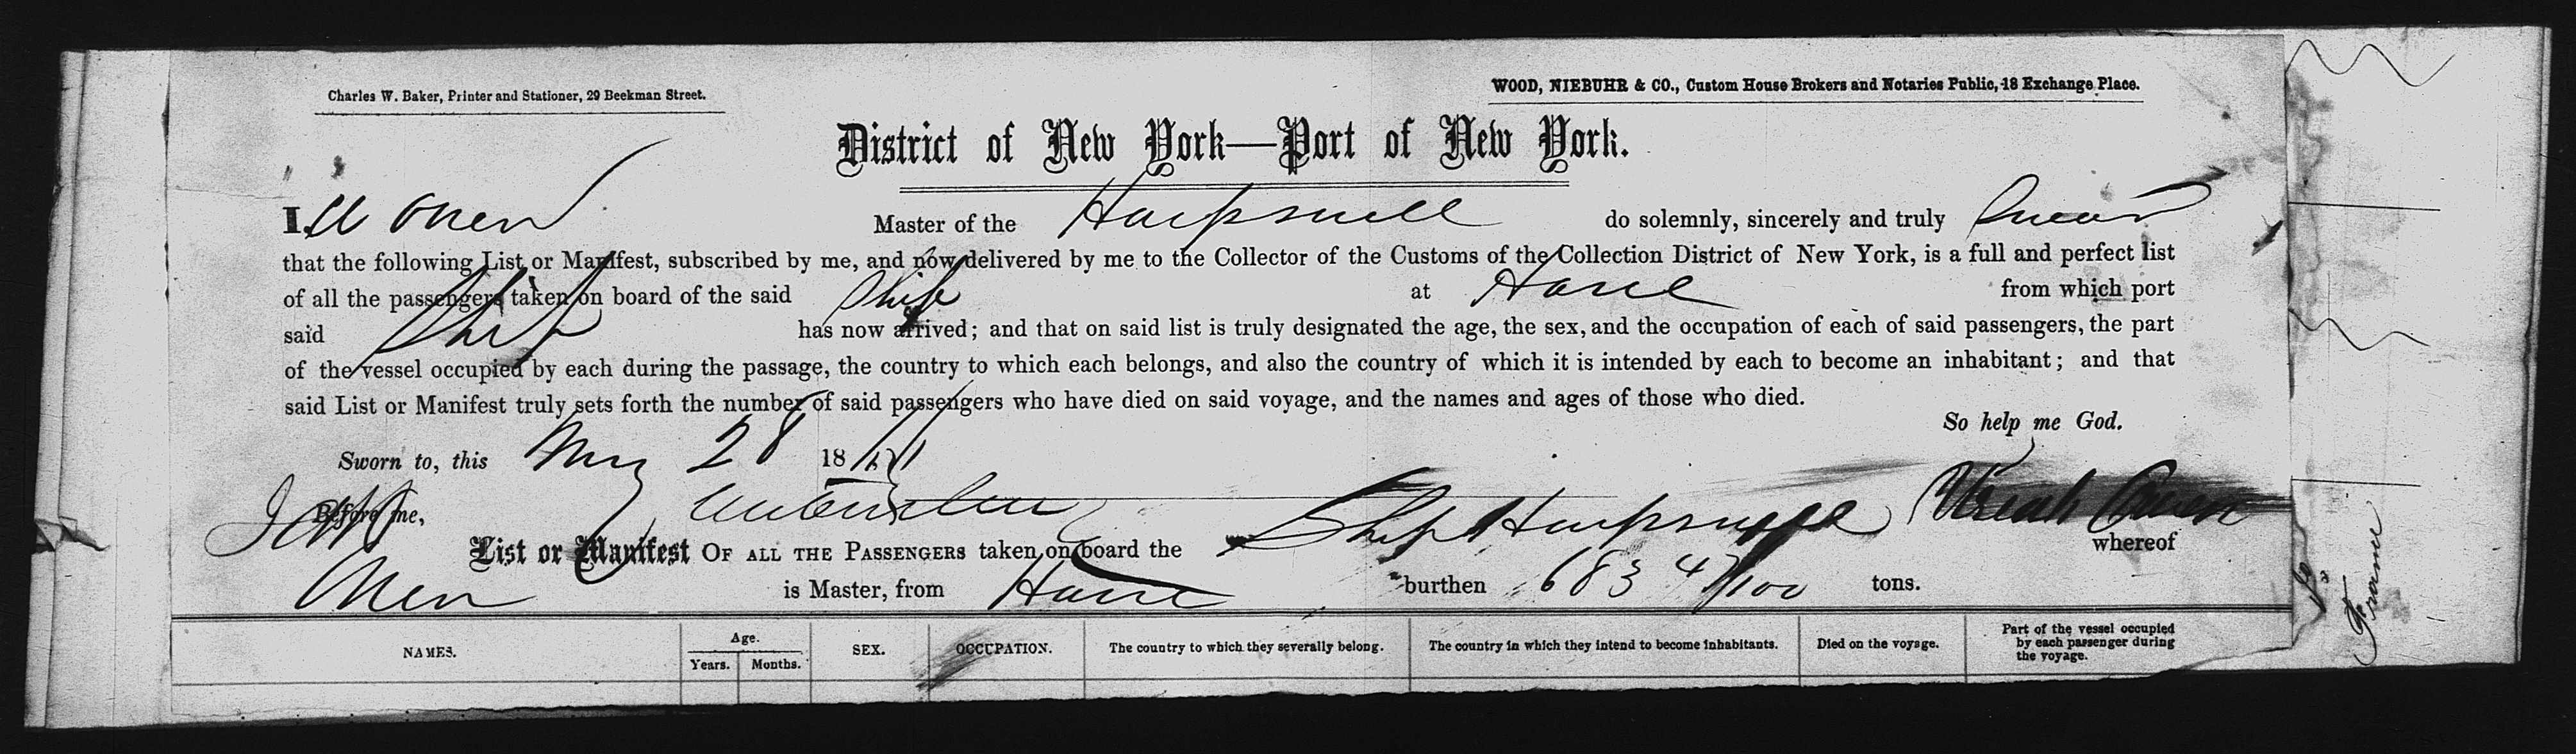 Charles W. Baker, Printer and Stationer, 29 Beekman Street.
WOOD, NIEBUHR & CO., Custom House Brokers and Notaries Public, 18 Exchange Place.
District of New York—Port of New York.
I, U Owen Master of the Harpswell do solemnly, sincerely and truly Swear
that the following List or Manifest, subscribed by me, and now delivered by me to the Collector of the Customs of the Collection District of New York, is a full and perfect list
of all the passengers taken on board of the said Ship at Havre from which port
said Ship has now arrived; and that on said list is truly designated the age, the sex, and the occupation of each of said passengers, the part
of the vessel occupied by each during the passage, the country to which each belongs, and also the country of which it is intended by each to become an inhabitant; and that
said List or Manifest truly sets forth the number of said passengers who have died on said voyage, and the names and ages of those who died.
So help me God.
Sworn to, this May 28 18
Before me, Uriah Owen
List or Manifest OF ALL THE PASSENGERS taken on board the Ship Harpswell whereof
Owen is Master, from Havre burthen 683 47/100 tons.
NAMES. Age. Years. Months. SEX. OCCUPATION. The country to which they severally belong. The country in which they intend to become inhabitants. Died on the voyage. Part of the vessel occupied by each passenger during the voyage.